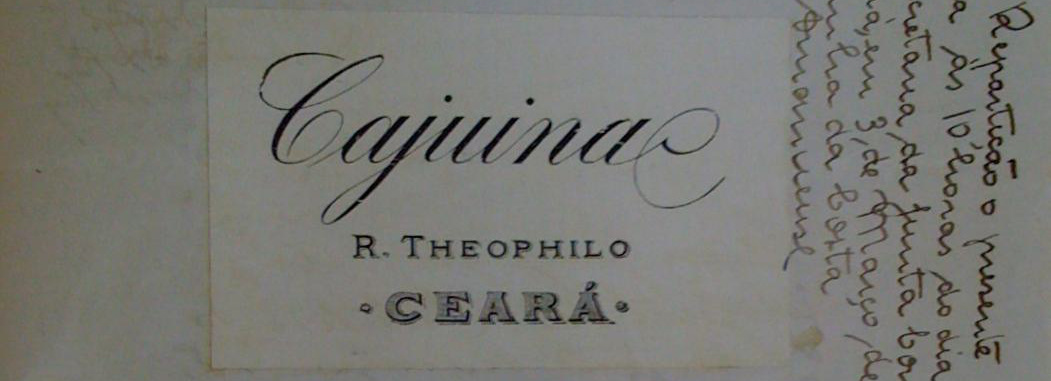 Cajuina
R. THEOPHILO
·CEARÁ·
Repartição o presente
a ás 10 horas do dia
cretaria da Junta Com
á, em 3, de Março, de
nha da Costa